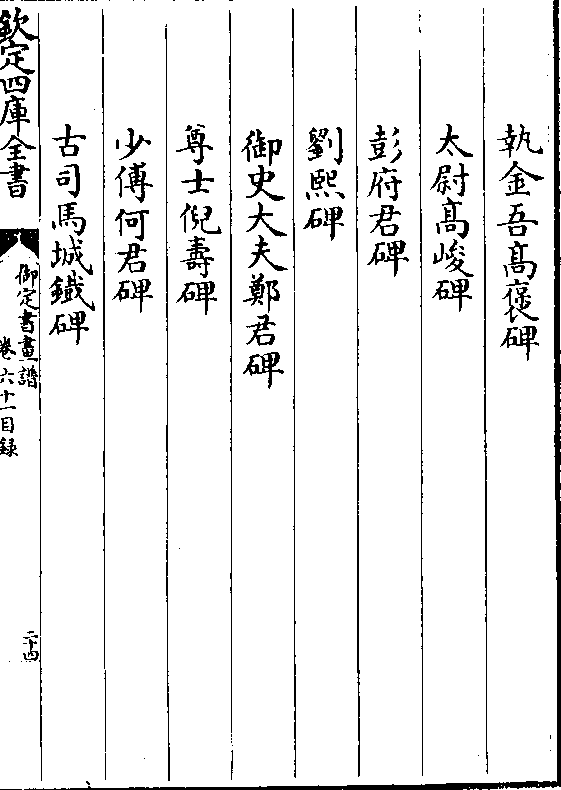 執金吾髙褒碑
太尉髙峻碑
彭府君碑
劉熙碑
御史大夫鄭君碑
尊士倪壽碑
少傅何君碑
古司馬城鐵碑
欽定四庫全書
御定書畫譜
卷六十一目録
二十四